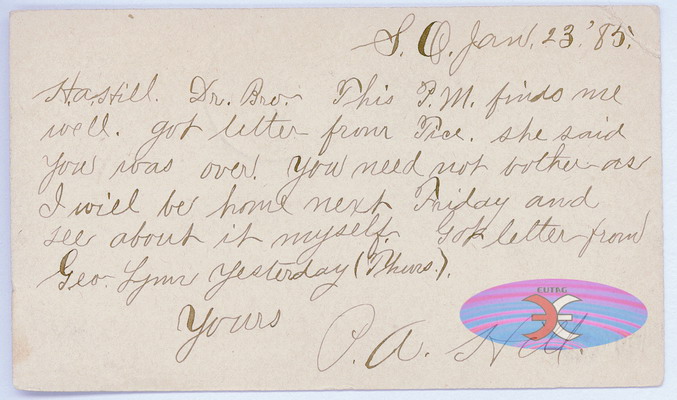 S. O. Jan. 23.'85.
H.a. Hill. Dr. Bro. This P.M. finds me
well. got letter from Tice. she said
you was over. you need not bother as
I will be home next Friday and
see about it myself. Got letter from
Geo. Lynn yesterday (Thurs.).
Yours
P. A.
EUTAG